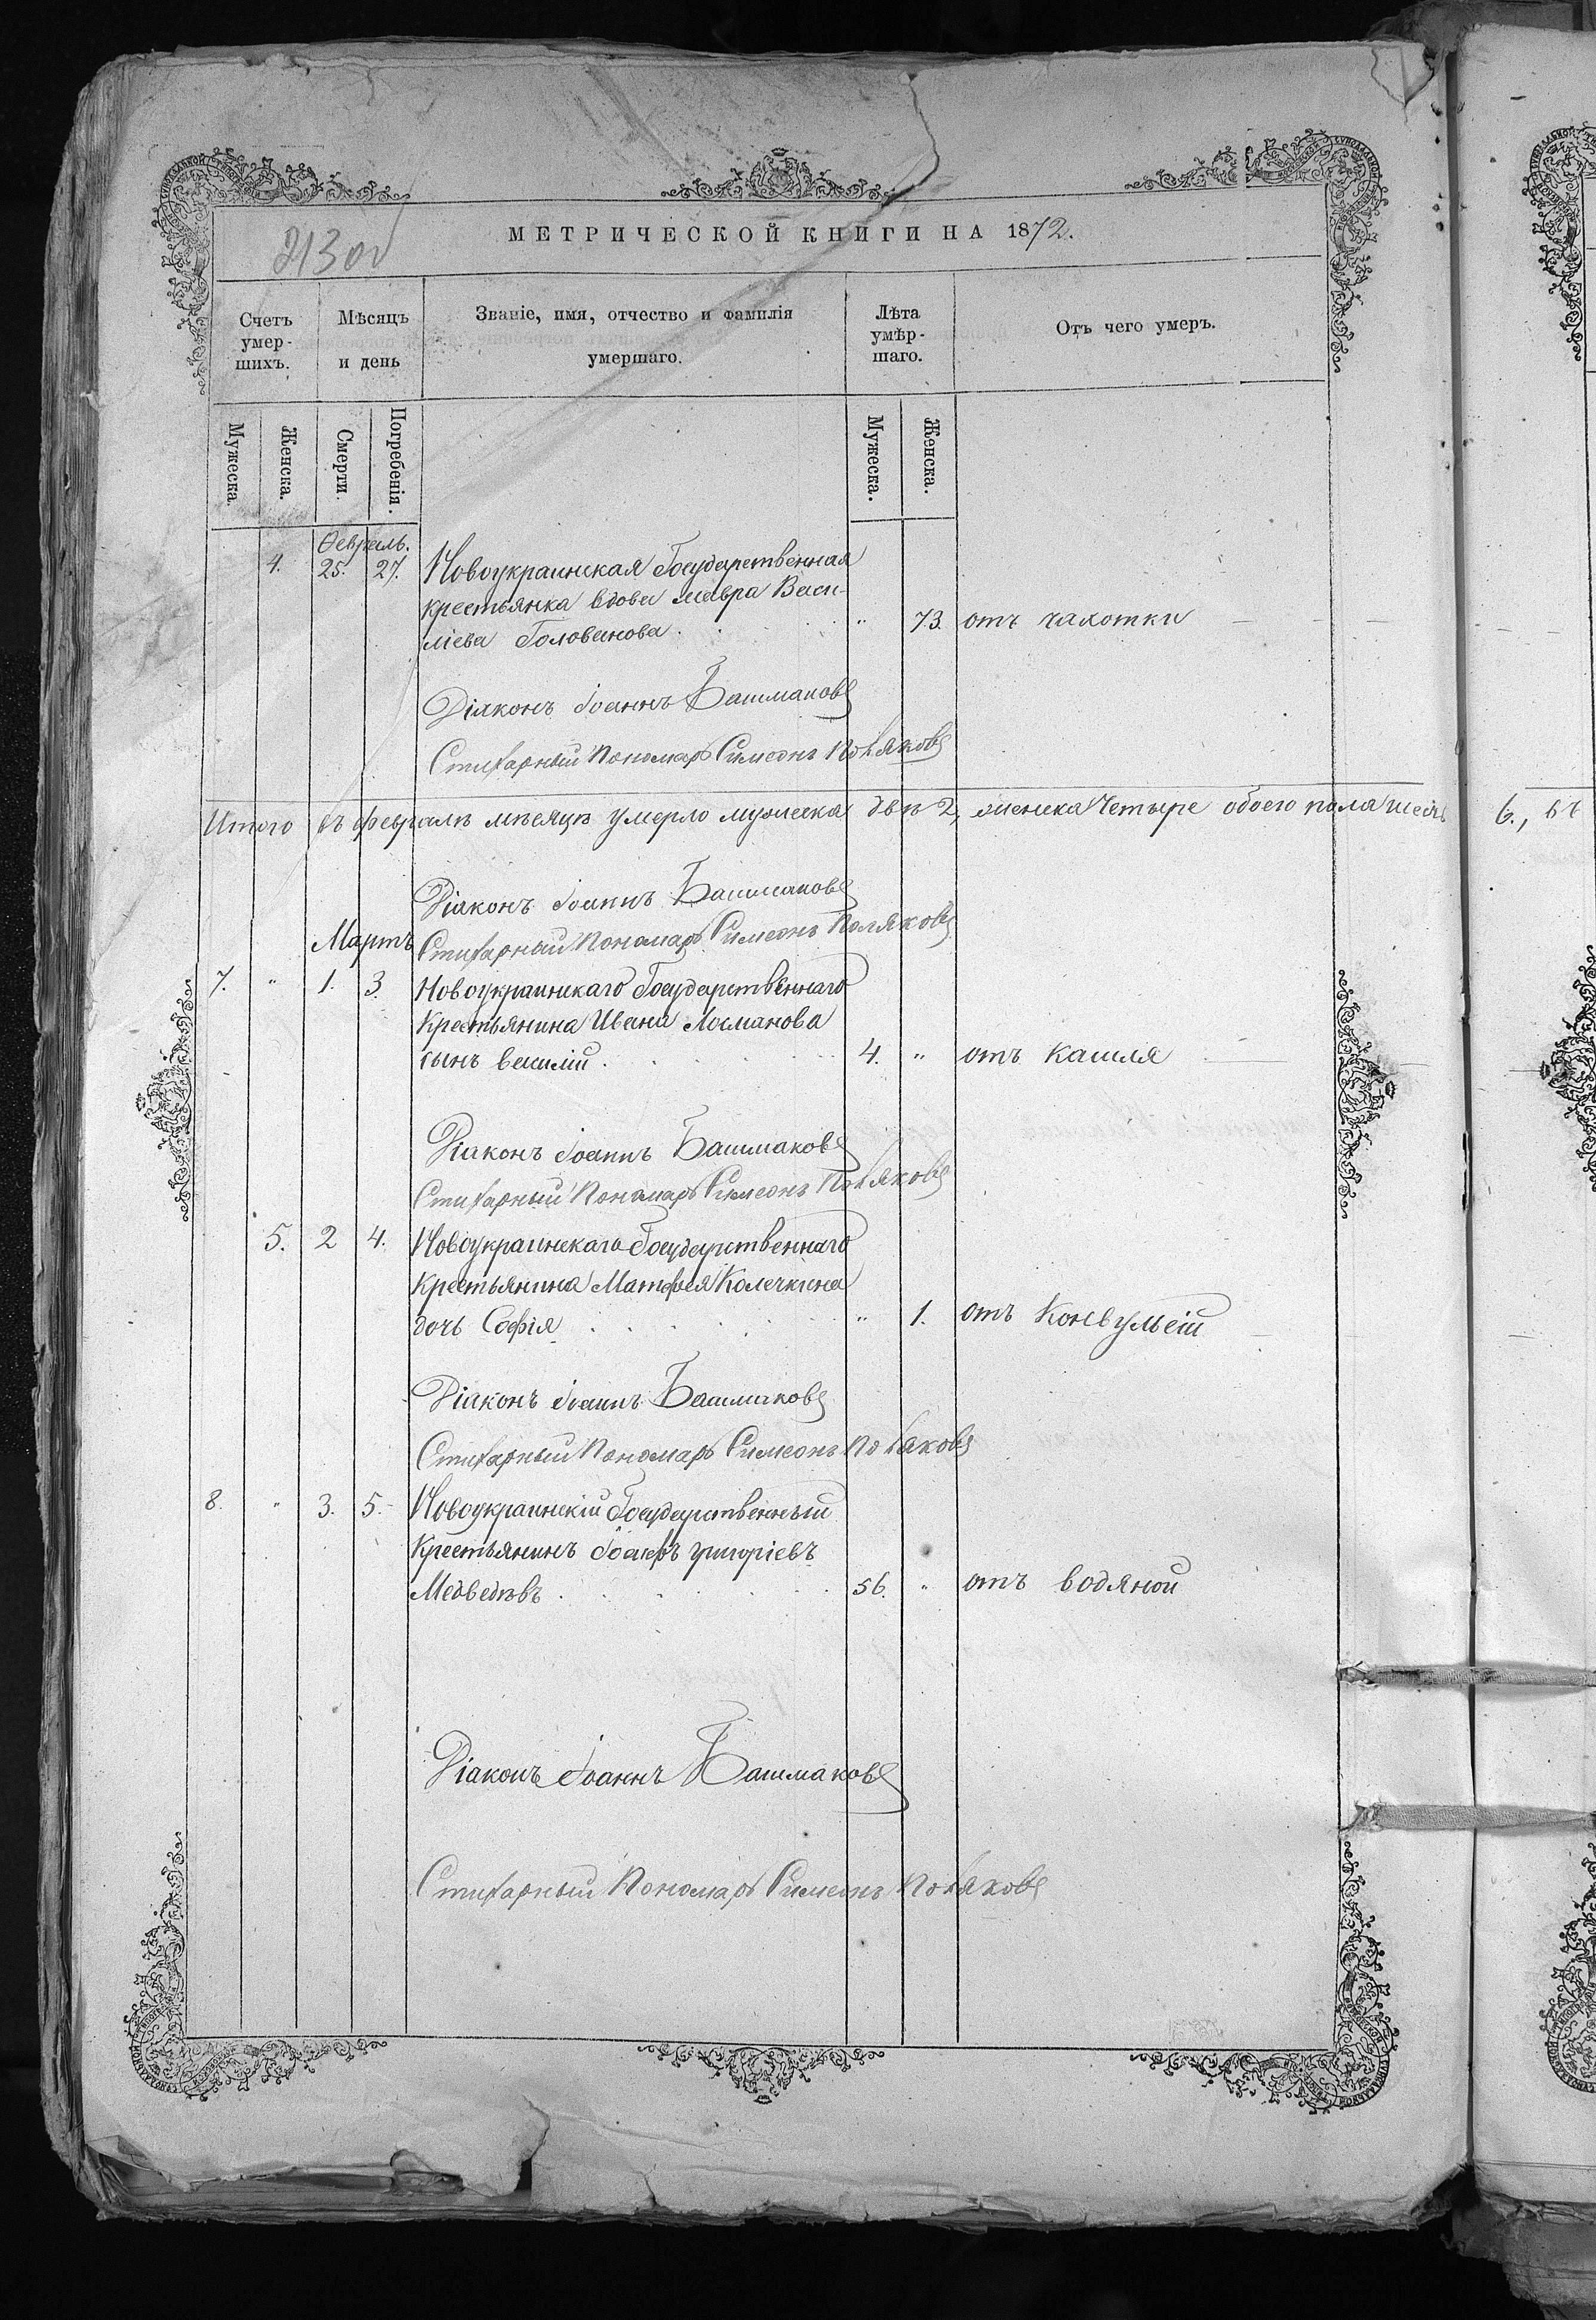 213 об
МЕТРИЧЕСКОЙ КНИГИ НА 1872.
Счетъ умер-шихъ.
Мѣсяцъ и день
Званіе, имя, отчество и фамилія умершаго.
Лѣта умѣр-шаго.
Отъ чего умеръ.
Мужеска.
Женска.
Смерти.
Погребенія.
Мужеска.
Женска.
Февраль.
4. 25. 27. Новоукраинская Государственная
крестьянка вдова Мавра Васи-
лiева Голованова. " 73. отъ чахотки
Діаконъ Іоаннъ Башмаковъ
Стихарный Пономарь Симеонъ Поляковъ
Итого въ февралѣ мѣсяцѣ умерло мужеска двѣ 2, женска Четыре обоего пола шесть 6., въ
Діаконъ Іоаннъ Башмаковъ
Мартъ
Стихарный Пономарь Симеонъ Поляковъ
7. " 1. 3. Новоукраинскаго Государственнаго
Крестьянина Ивана Лосманова
сынъ василій. 4. " отъ кашля
Діаконъ Іоаннъ Башмаковъ
Стихарный Пономарь Симеонъ Поляковъ
5. 2 4. Новоукраинскаго Государственнаго
Крестьянина Матфея Колечкина
дочь Софія " 1. отъ Конвульсій
Діаконъ Іоаннъ Башмаковъ
Стихарный Пономарь Симеонъ Поляковъ
8. " 3. 5. Новоукраинскій Государственный
Крестьянинъ григоріевъ
Медведѣвъ 56. " отъ водяной
Діаконъ Іоаннъ Башмаковъ
Стихарный Пономарь Симеонъ Поляковъ